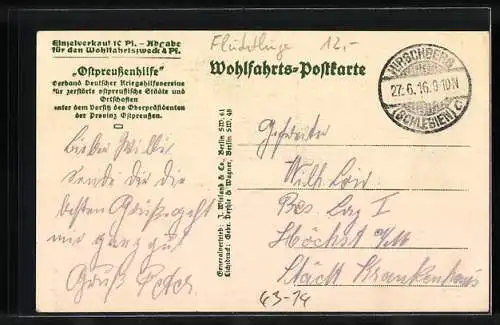 Einzelverkauf 10 Pf. – Abgabe
für den Wohlfahrtszweck 4 Pf.
„Ostpreußenhilfe"
Verband Deutscher Kriegshilfsvereine
für zerstörte ostpreußische Städte und
Ortschaften
unter dem Vorsitz des Oberpräsidenten
der Provinz Ostpreußen.
Flüchtlinge 12,-
Wohlfahrts-Postkarte
HIRSCHBERG
27.6.16.9-10N
(SCHLESIEN) C
Lieber Willi
Sende dir die
besten Grüße, geht
mir ganz gut
Gruß Peter
Generalvertrieb: J. Wieland & Co. Berlin SW. 61
Lichtdruck: Gebr. & Wagner, Berlin SW. 48
Gefreiter
Wilh.
Res. Laz I
Höchst a/M
Städt Krankenhaus
63-14